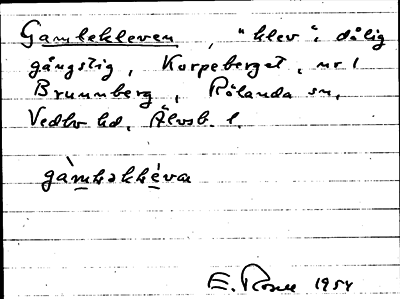 Gamlekleven, "klev": dålig
gångstig, Korpeberget, nr 1
Brunnberg, Rölanda sn,
Vedbo hd, Älvsb. l.
gàmləkléva
E. Rosell 1954